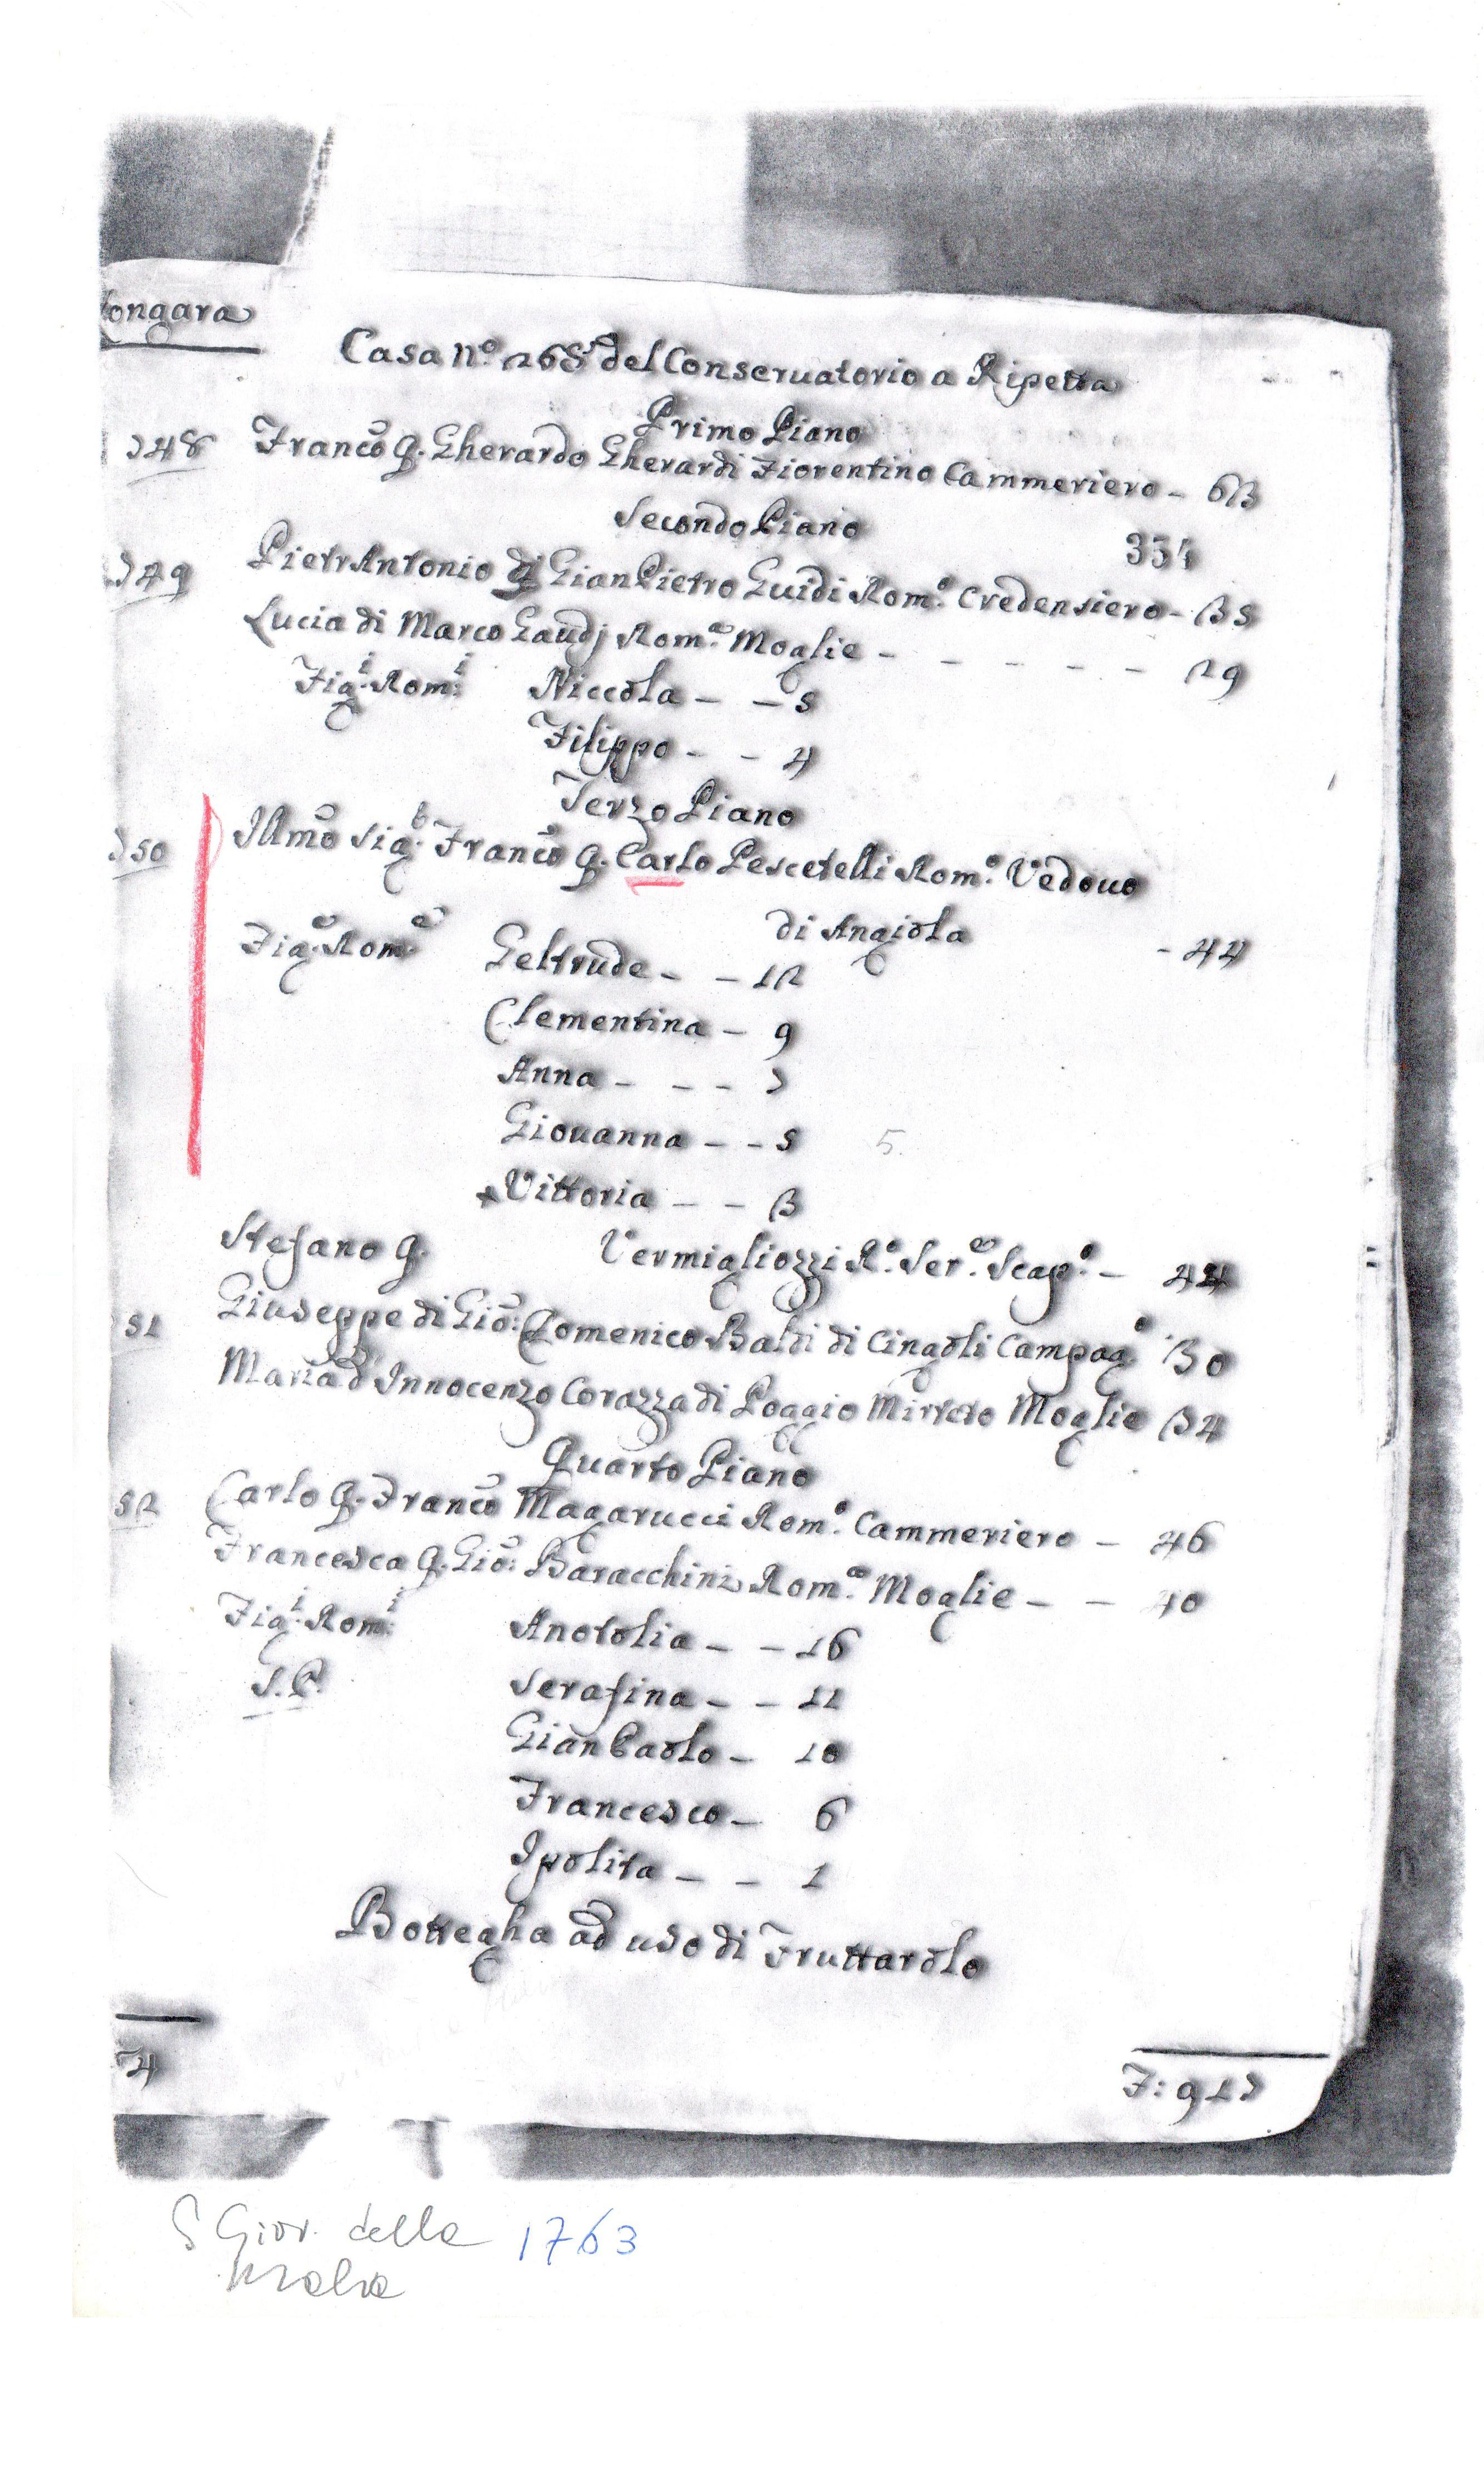 longara
Casa n.º 268 del Conseruatorio a Ripetta
Primo Piano
748 Franco q. Gherardo Gherardi Fiorentino Cammeriero - 63
Secondo Piano
354
749 PietrAntonio di GianPietro Guidi Rom.º Credensiero - 35
Lucia di Marco Gaudj Rom.ª Moglie - - - - - 29
Fig.i Rom.i Niccola - - 5
Filippo - - 4
Terzo Piano
750 Illmo Sig.r Franco q. Carlo Pescetelli Rom.º Vedouo
di Angiola - 44
Fig.e Rom.e Geltrude - - 12
Clementina - 9
Anna - - - 7
Giouanna - - 5 5.
Vittoria - - 3
Stefano q. Vermigliozzi R.º Ser.re Scap.º - 44
51 Giuseppe di Gio: Domenico Baldi di Cingoli Campag.º 30
Maria d'Innocenzo Corazza di Poggio Mirteto Moglie 34
Quarto Piano
52 Carlo q. Franco Magarucci Rom.º Cammeriero - 46
Francesca q. Gio: Baracchini Rom.ª Moglie - - 40
Fig.i Rom.i Anotolia - - 16
S.P. Serafina - - 11
GianPaolo - 10
Francesco - 6
Ipolita - - 1
Bottegha ad uso di Fruttarolo
74
F: 917
S Giov. della 1763
Malva